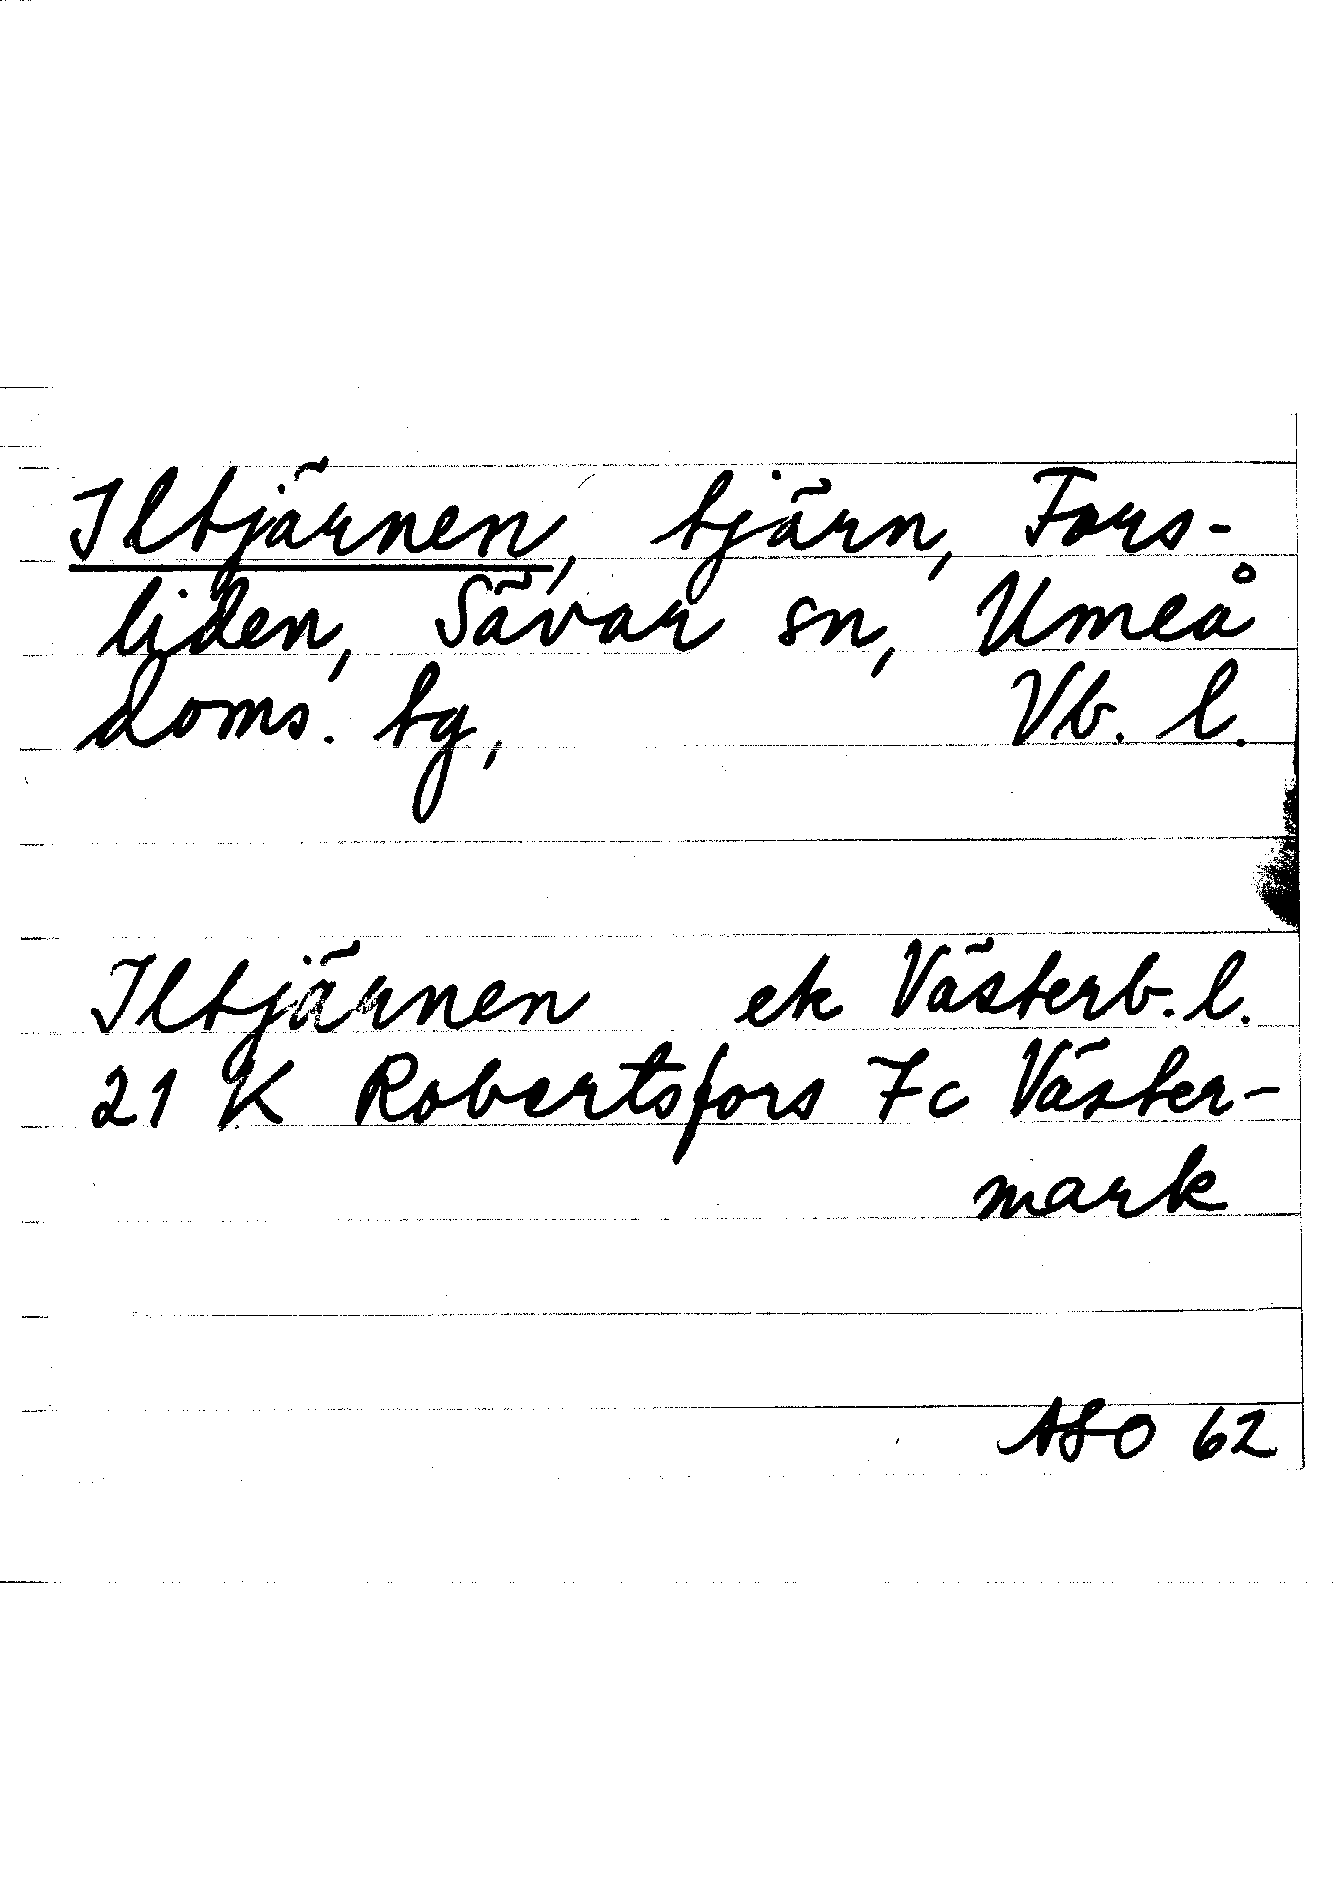 Iltjärnen, tjärn, Fors-
liden, Sävar sn, Umeå
doms. tg, Vb. l.
Iltjärnen ek Västerb. l.
21 K Robertsfors 7c Väster-
mark
ASO 62